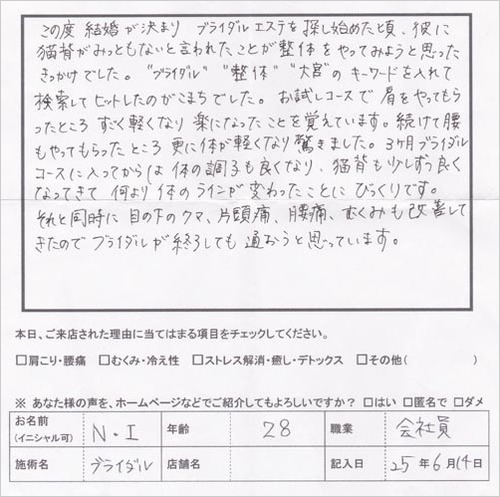 この度 結婚が決まり ブライダルエステを探し始めた頃、彼に
猫背がみっともないと言われたことが整体をやってみようと思った
きっかけでした。"ブライダル" "整体" "大宮"のキーワードを入れて
検索してヒットしたのがこまちでした。お試しコースで肩をやってもら
ったところ すごく軽くなり 楽になったことを覚えています。続けて腰
もやってもらったところ 更に体が軽くなり驚きました。3ヶ月ブライダル
コースに入ってからは体の調子も良くなり、猫背も少しずつ良く
なってきて 何より体のラインが変わったことにびっくりです。
それと同時に 目の下のクマ、片頭痛、腰痛、むくみも改善して
きたので ブライダルが終了しても通おうと思っています。
本日、ご来店された理由に当てはまる項目をチェックしてください。
□肩こり・腰痛 □むくみ・冷え性 □ストレス解消・癒し・デトックス □その他( )
※ あなた様の声を、ホームページなどでご紹介してもよろしいですか? □はい □匿名で □ダメ
お名前 (イニシャル可) N・I 年齢 28 職業 会社員
施術名 ブライダル 店舗名 記入日 25年6月14日